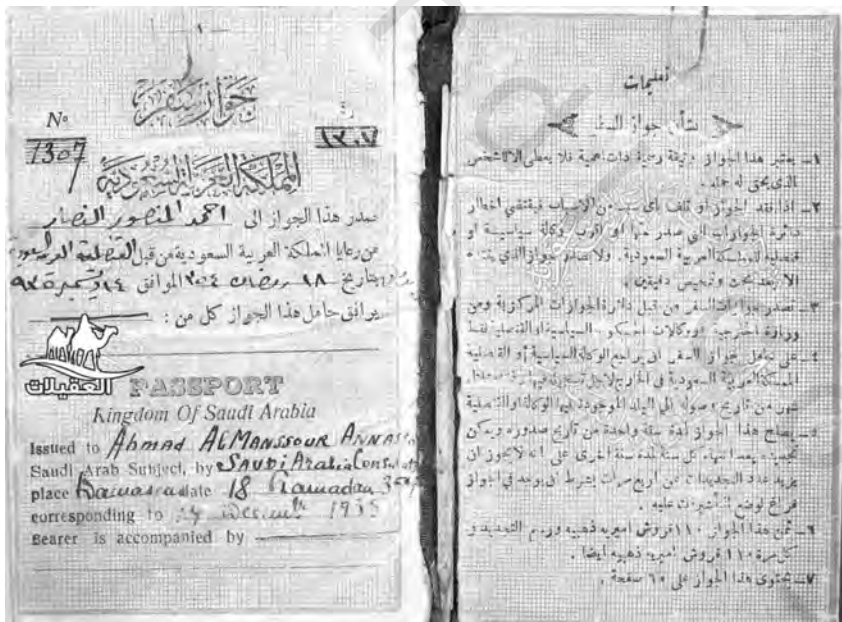 - ١ -
جواز سفر
Nº
رقم
1307
١٣٠٧
المملكة العربية السعودية
صدر هذا الجواز الى احمد المنصور النصار
من رعايا المملكة العربية السعودية من قبل القنصلية العربية السعودية
بتاريخ ١٨ رمضان ٣٥٤ الموافق ١٤
يرافق حامل هذا الجواز كل من :
العقيلات
PASSPORT
Kingdom Of Saudi Arabia
Issued to Ahmad ALMANSSOUR
Saudi Arab Subject, by SAUDI Arabia
place Damascus date 18 Ramadan
corresponding to 1935
Bearer is accompanied by
تعليمات
بشأن جواز السفر
١– يعتبر هذا الجواز وثيقة رسمية ذات اهمية فلا يعطى الا للشخص
الذي يحق له حمله .
٢– اذا فقد الجواز او تلف لأي سبب من الأسباب فيقتضي اخطار
دائرة الجوازات التي صدر منها او اقرب وكالة سياسية او
قنصلية للمملكة العربية السعودية . ولا يصدر جواز
الا بعد بحث وتمحيص دقيقين .
٣– تصدر جوازات السفر من قبل دائرة الجوازات المركزية ومن
وزارة الخارجية السياسية او القنصلية فقط
٤– على حامل جواز السفر ان يراجع الوكالة السياسية أو القنصلية
للمملكة العربية السعودية في الخارج لاجل
شهر من تاريخ وصوله إلى البلد الموجودة فيها الوكالة او القنصلية
٥– يصلح هذا الجواز لمدة سنة واحدة من تاريخ صدوره ويمكن
تجديده بعد كل سنة لمدة سنة اخرى على انه لا يجوز ان
يزيد عدد التجديدات عن اربع مرات بشرط ان يوجد في الجواز
فراغ لوضع التأشيرات عليه .
٦– ثمن هذا الجواز ١١٠ قروش اميريه ذهبيه ورسم التجديد في
كل مرة ١١٠ قروش اميريه ذهبيه ايضا .
٧– يحتوى هذا الجواز على صفحة .